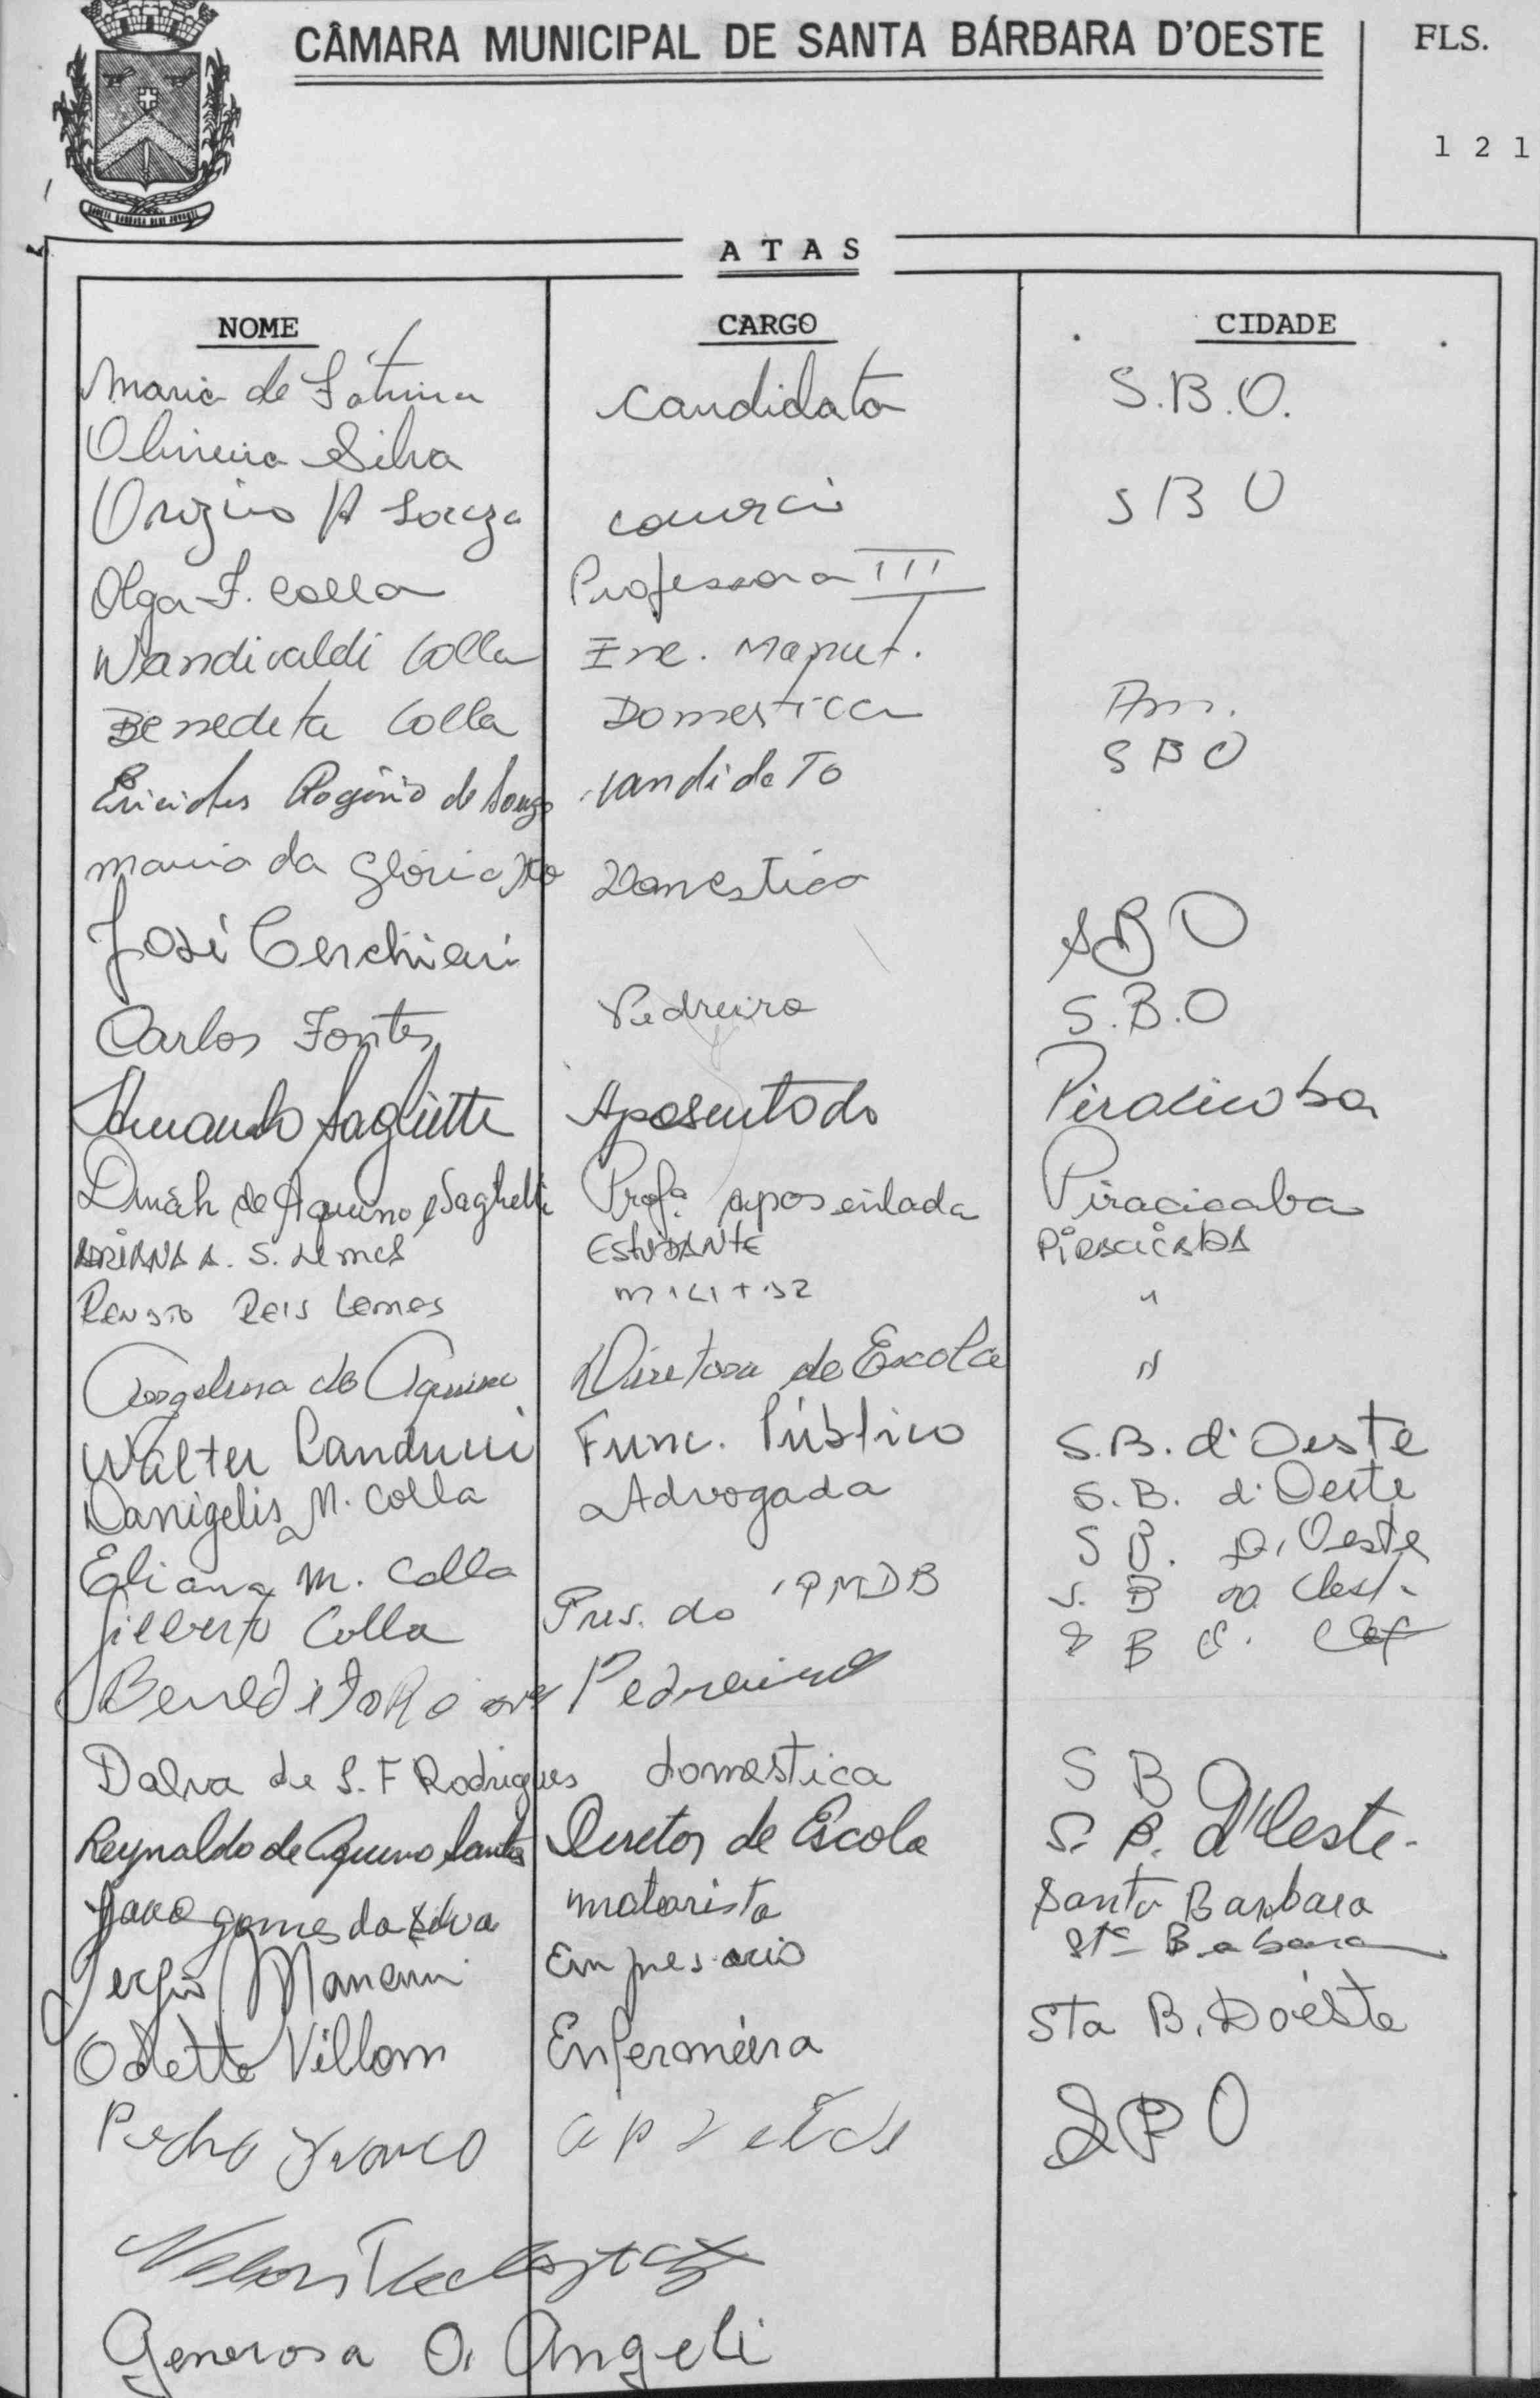 CÂMARA MUNICIPAL DE SANTA BÁRBARA D'OESTE
FLS.
1 2 1
A T A S
NOME CARGO CIDADE
Maria de Fátima Candidata S.B.O.
Oliveira Silva
A Souza comercio S B O
Olga F. Colla Professora III
Wandivaldi Colla Enc. Manut.
Benedeta Colla Domestica Am.
Rogério de Souza Candidato S B O
Maria da Glória Domestica
José Cerchiari S B O
Carlos Fontes Pedreiro S.B.O
Armando Saglietti Aposentado Piracicaba
Dináh de Aquino Saglietti Profª aposentada Piracicaba
ADRIANA A. S. Lemes ESTUDANTE Piracicaba
Renato Reis Lemes militar "
de Aquino Diretora de Escola "
Walter Landucci Func. Público S.B. d'Oeste
Danigelis M. Colla Advogada S.B. d'Oeste
Eliana M. Colla S B. D'Oeste
Gilberto Colla Pres. do PMDB S. B
Benedito Pedreiro S B
Dalva de S. F Rodrigues domestica S B
Reynaldo de Aquino Santos Diretor de Escola S. B. d'Oeste.
João gomes da Silva motorista Santa Barbara
Sergio Mancini Empresario Sta Babara
Odette Villam Enfermeira Sta B. Doéste
Pedro Franco S B O
Nelson
Generosa O. Angeli